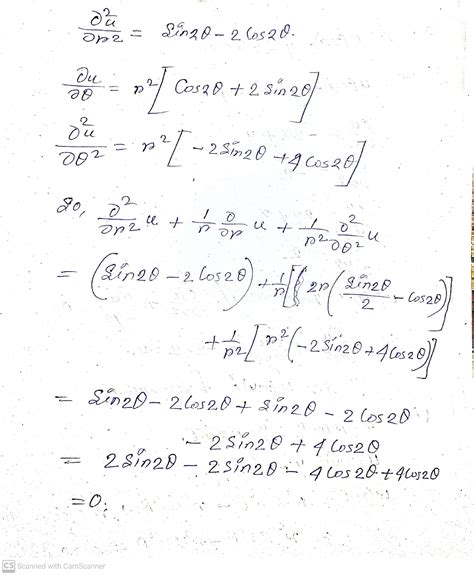 ∂²u/∂r² = Sin2θ - 2 Cos2θ.
∂u/∂θ = r² [ Cos2θ + 2 Sin2θ ]
∂²u/∂θ² = r² [ - 2 Sin2θ + 4 Cos2θ ]
So, ∂²/∂r² u + 1/r ∂/∂r u + 1/r² ∂²/∂θ² u
= ( Sin2θ - 2 Cos2θ ) + 1/r [ 2r ( Sin2θ/2 - Cos2θ ) ]
+ 1/r² [ r² ( - 2 Sin2θ + 4 Cos2θ ) ]
= Sin2θ - 2 Cos2θ + Sin2θ - 2 Cos2θ
- 2 Sin2θ + 4 Cos2θ
= 2 Sin2θ - 2 Sin2θ - 4 Cos2θ + 4 Cos2θ
= 0.
CS Scanned with CamScanner